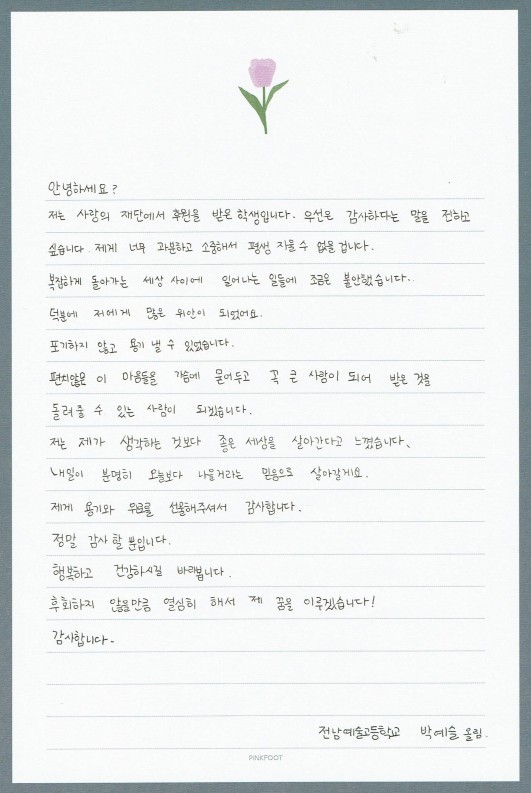 안녕하세요?
저는 사랑의 재단에서 후원을 받은 학생입니다. 우선은 감사하다는 말을 전하고
싶습니다. 제게 너무 과분하고 소중해서 평생 지울 수 없을 겁니다.
복잡하게 돌아가는 세상 사이에 일어나는 일들에 조금은 불안했습니다..
덕분에 저에게 많은 위안이 되었어요.
포기하지 않고 용기 낼 수 있었습니다.
편치않은 이 마음들을 가슴에 묻어두고 꼭 큰 사람이 되어 받은 것을
돌려줄 수 있는 사람이 되겠습니다.
저는 제가 생각하는 것보다 좋은 세상을 살아간다고 느꼈습니다.
내일이 분명히 오늘보다 나을거라는 믿음으로 살아갈게요.
제게 용기와 위로를 선물해주셔서 감사합니다.
정말 감사 할 뿐입니다.
행복하고 건강하시길 바래봅니다.
후회하지 않을만큼 열심히 해서 제 꿈을 이루겠습니다!
감사합니다-
전남예술고등학교 박예슬 올림.
PINKFOOT